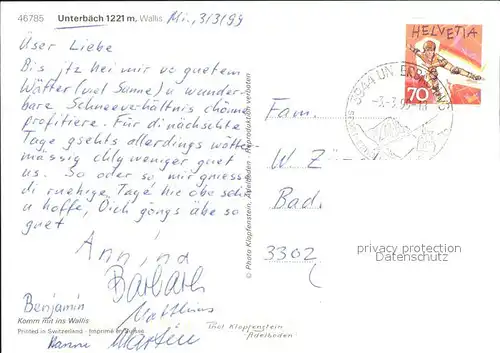 46785 Unterbäch 1221 m, Wallis Mi, 3/3/99
Üser Liebe
Bis jtz hei mir vo guetem
Wätter (viel Sunne) u wunder-
bare Schneeverhältnis chönne
profitiere. Für di nächschte
Tage gsehts allerdings wätter-
mässig chly weniger guet
us. So oder so mir gniesse
di ruehige Tage hie obe seh
u hoffe, Dich göngs äbe so
guet
Annina
Barbara
Benjamin Matthias
Komm mit ins Wallis
Printed in Switzerland - Imprimé en Suisse
Hanni Martin
© Photo Klopfenstein, Adelboden - Reproduktion verboten
Thol Klopfenstein
Adelboden
HELVETIA
70
3944 UNTERBÄCH VS
-3.-3.99-11
Fam.
W. Zü
Bad.
3302
privacy protection
Datenschutz